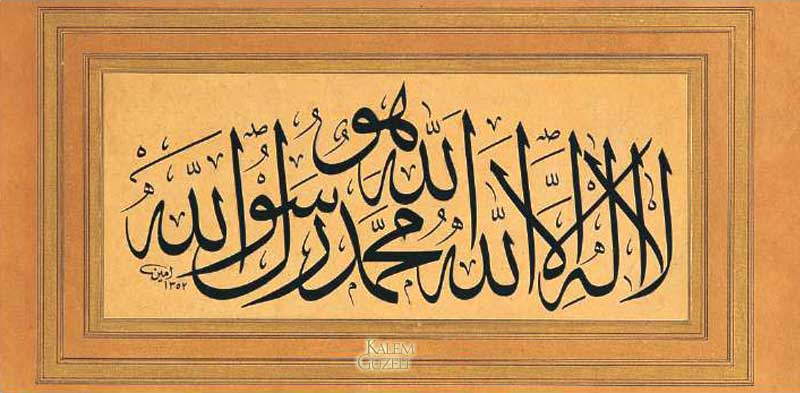 لا اله الا الله الله هو محمد رسول الله
امين
١٣٥٢
KALEM
GÜZELİ